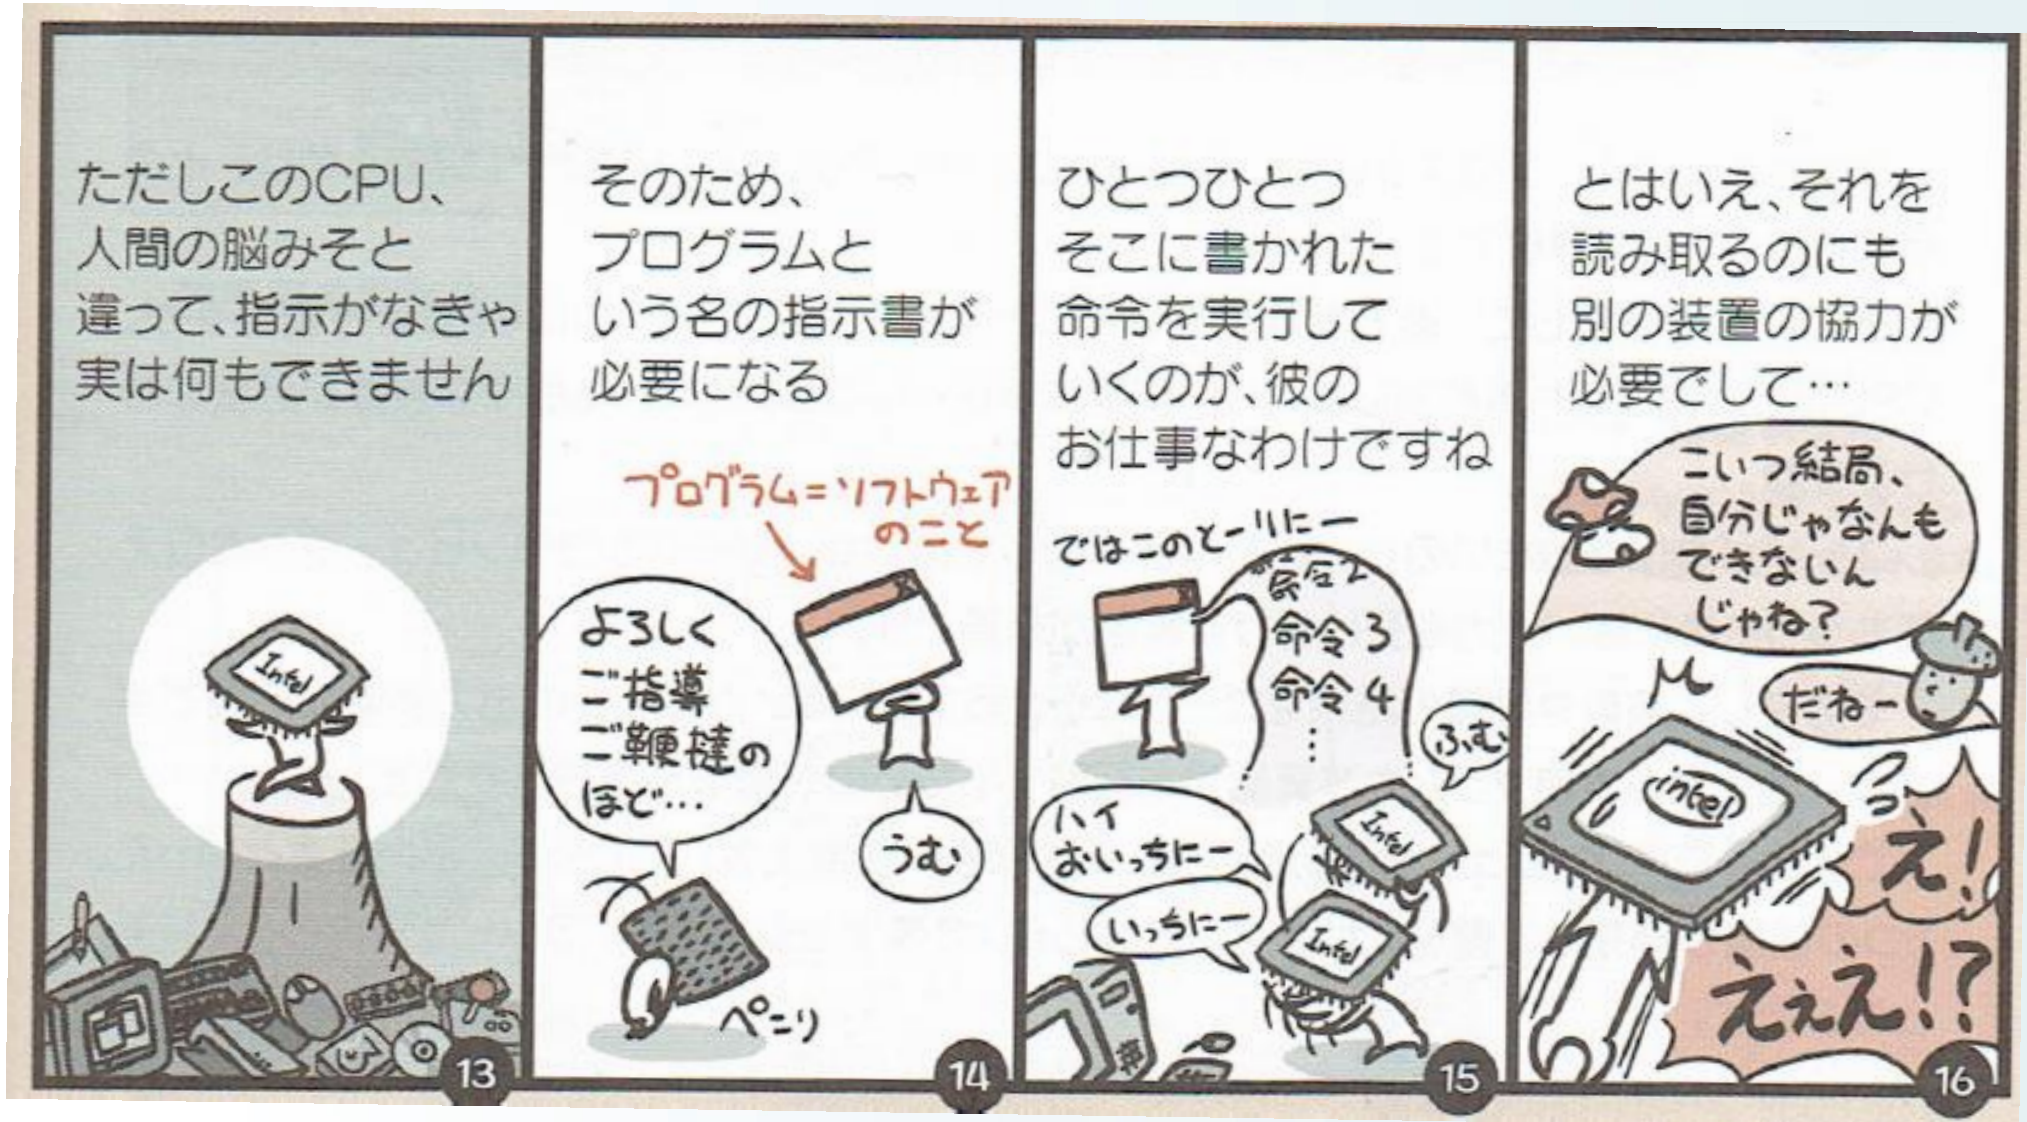 ただしこのCPU、
人間の脳みそと
違って、指示がなきゃ
実は何もできません
Intel
13
そのため、
プログラムと
いう名の指示書が
必要になる
プログラム=ソフトウェア
のこと
よろしく
ご指導
ご鞭撻の
ほど…
うむ
ぺこり
14
ひとつひとつ
そこに書かれた
命令を実行して
いくのが、彼の
お仕事なわけですね
ではこのとーりにー
命令2
命令3
命令4
⋮
ふむ
ハイ
おいっちにー
いっちにー
Intel
Intel
15
とはいえ、それを
読み取るのにも
別の装置の協力が
必要でして…
こいつ結局、
自分じゃなんも
できないん
じゃね?
だねー
intel
え!
えぇえ!?
16